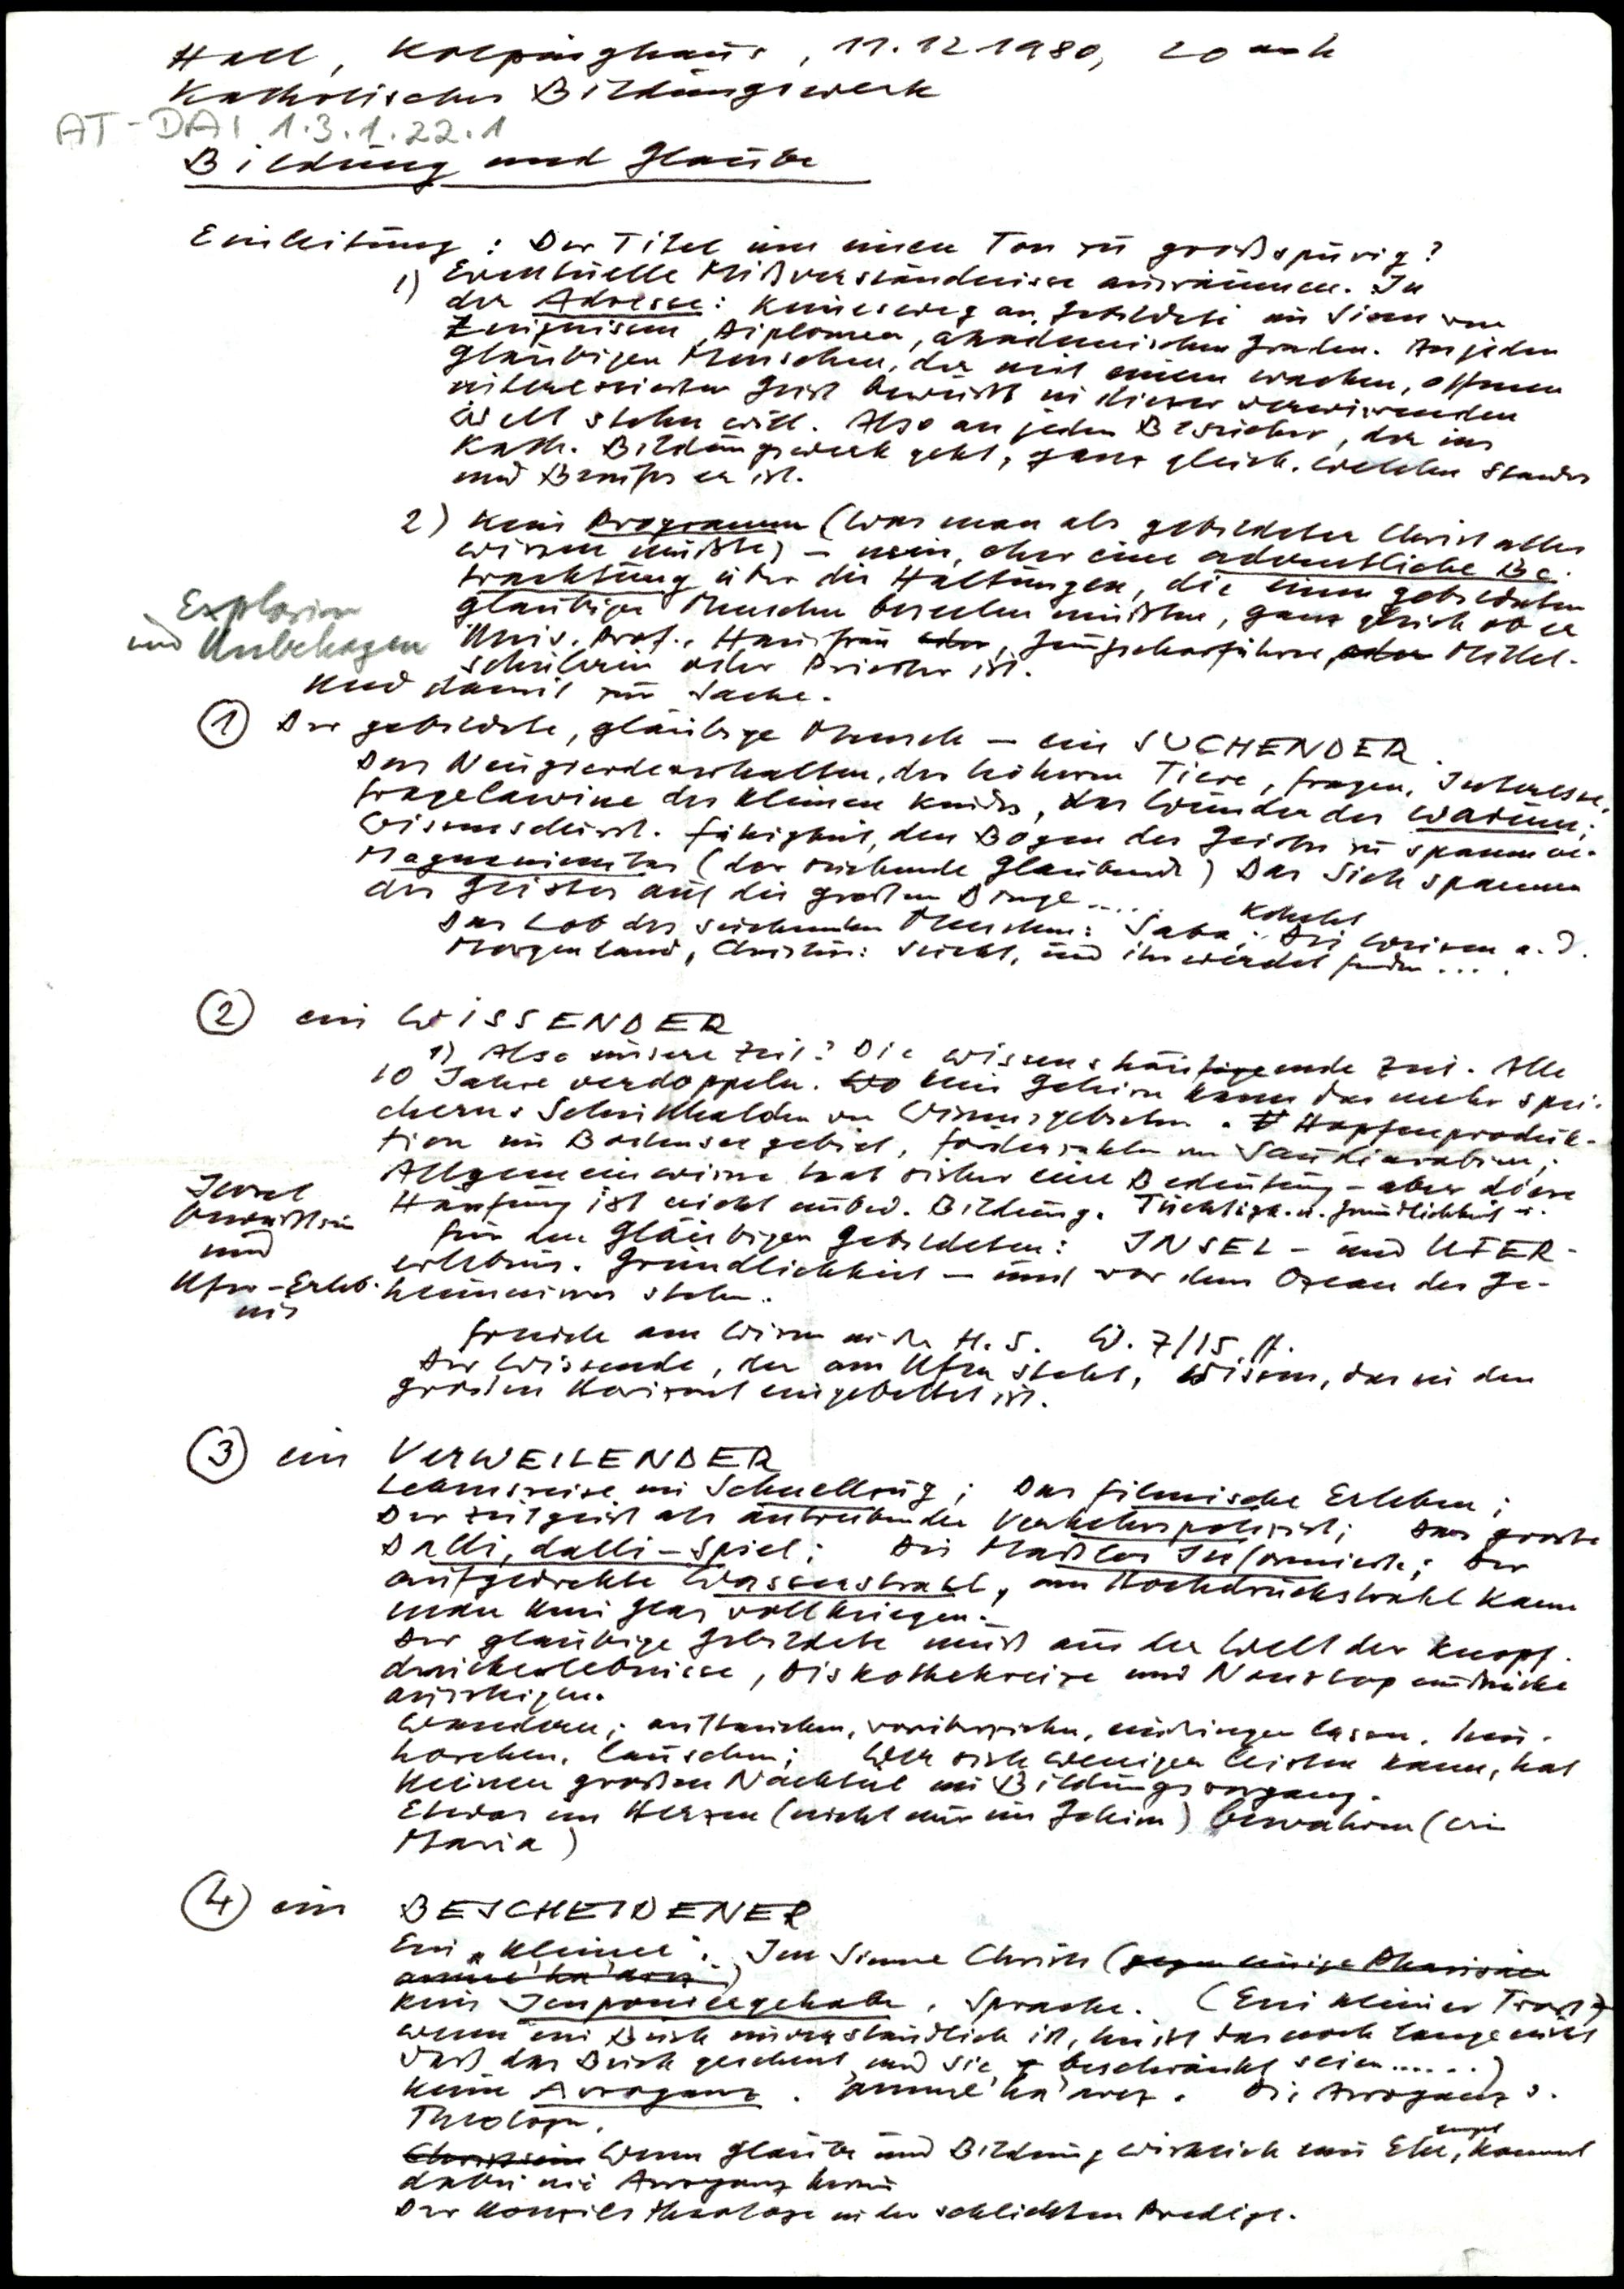 Hall, Kolpinghaus, 11.12.1980, 20 uh
Katholisches Bildungswerk
AT-DAI 1.3.1.22.1
Bildung und Glaube
Einleitung: Der Titel um einen Ton zu großspurig?
1) Eventuelle Mißverständnisse ausräumen. In
der Adresse: Keineswegs an Gebildete im Sinne von
Zeugnissen, Diplomen, akademischen Graden. An jeden
gläubigen Menschen, der mit einem wachen, offenen
interessierten Geist bewußt in dieser verwirrenden
Welt stehen will. Also an jeden Besucher, der ins
Kath. Bildungswerk geht, ganz gleich, welchen Standes
und Berufes er ist.
2) Kein Programm (was man als gebildeter Christ alles
wissen müßte) – nein, eher eine adventliche Be-
trachtung über die Haltungen, die einen gebildeten
gläubigen Menschen beseelen müßten, ganz gleich ob er
Explosion
und Unbehagen
Univ. Prof., Hausfrau oder, Jungscharführer, oder Mittel-
schülerin oder Priester ist.
Und damit zur Sache.
① Der gebildete, gläubige Mensch – ein SUCHENDER.
Das Neugierdeverhalten, der höheren Tiere, fragen, Interesse,
Fragelawine des kleinen Kindes, das Wunder des Warum;
Wissensdurst. Fähigkeit, den Bogen des Geistes zu spannen
Magnanimitas (der suchende Glaubende) Das Sich spannen
des Geistes auf die großen Dinge....
Das Lob des suchenden Menschen: Saba; Kohelet Die Weisen a. d.
Morgenland, Christus: Suchet, und ihr werdet finden....
② ein WISSENDER
1) Also unsere Zeit? Die wissenshäufende Zeit. Alle
10 Jahre verdoppeln. Wo kein Gehirn kann das mehr spei-
chern. Schutthalden von Wissensgebieten. Hopfenproduk-
tion im Bodenseegebiet, Förderzahlen von Saudiarabien;
Allgemeinwissen hat sicher eine Bedeutung – aber diese
Häufung ist nicht unbed. Bildung. Tüchtigk. u. Gründlichkeit
Insel
bewußtsein
und
Ufer-Erleb-
nis
für den Gläubigen Gebildeten: INSEL- und UFER-
erlebnis. Gründlichkeit – und vor dem Ozean des Ge-
heimnisses stehen.
Freude am Wissen in der H. S. W. 7/15 ff.
Der Wissende, der am Ufer steht, Wissen, das in den
großen Horizont eingebettet ist.
③ ein VERWEILENDER
Lebensreise im Schnellzug; Das filmische Erleben;
Der Zeitgeist als antreibender Verkehrspolizist; Das große
Dalli, dalli-Spiel; Die Maßlos Informierte; Der
aufgedrehte Wasserstrahl, am Hochdruckstrahl kann
man kein Glas vollkriegen.
Der gläubige Gebildete muß aus der Welt der Knopf-
druckerlebnisse, Diskothekreize und Nonstop eindrücke
aussteigen.
Wandern; auftauchen, vorüberziehen, eindringen lassen, hin-
horchen, lauschen; Wer sich weniger leisten kann, hat
keinen großen Nachteil im Bildungsvorgang.
Etwas im Herzen (nicht nur im Gehirn) bewahren (wie
Maria)
④ ein BESCHEIDENER
Ein „Kleiner". Im Sinne Christi (gegen einige Pharisäer
amme ha'arez)
Kein Imponiergehabe, Sprache. (Ein kleiner Trost
wenn ein Buch unverständlich ist, heißt das noch lange nicht
daß das Buch gescheit und Sie beschränkt seien......)
Keine Arroganz. 'amme ha'arez. Die Arroganz d.
Theologen.
Christsein Wenn Glaube und Bildung wirklich eine Ehe, kommt
dabei nie Arroganz heraus
Der Konzilstheologe in der schlichten Predigt.